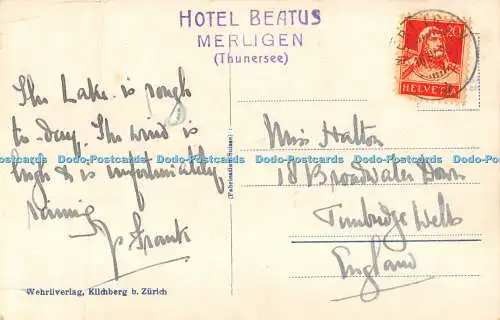 HOTEL BEATUS
MERLIGEN
(Thunersee)
20
HELVETIA
The Lake is rough
to-day. The wind is
high & is unfortunately
raining
Frank
Miss Halton
18 Broadwater Down
Tunbridge Wells
England
(Fabrication Suisse)
Dodo-Postcards Dodo-Postcards Dodo-Postcards Dodo-Postcards Dodo-Postcards
Wehrliverlag, Kilchberg b. Zürich